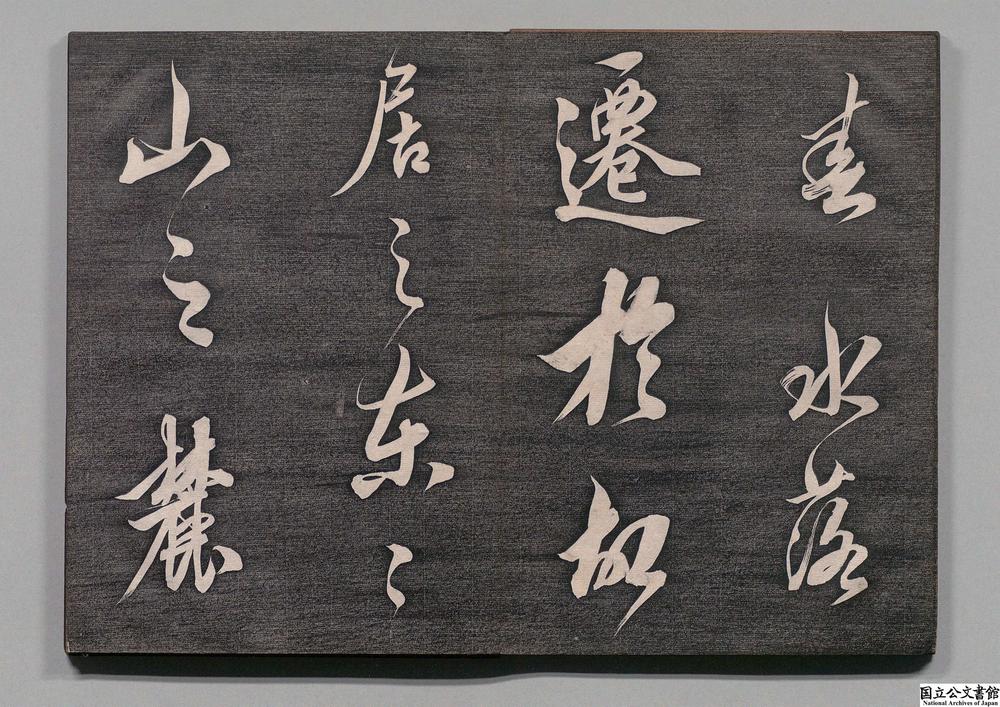 春水落
遷於故
居之東〻
山之麓
国立公文書館
National Archives of Japan